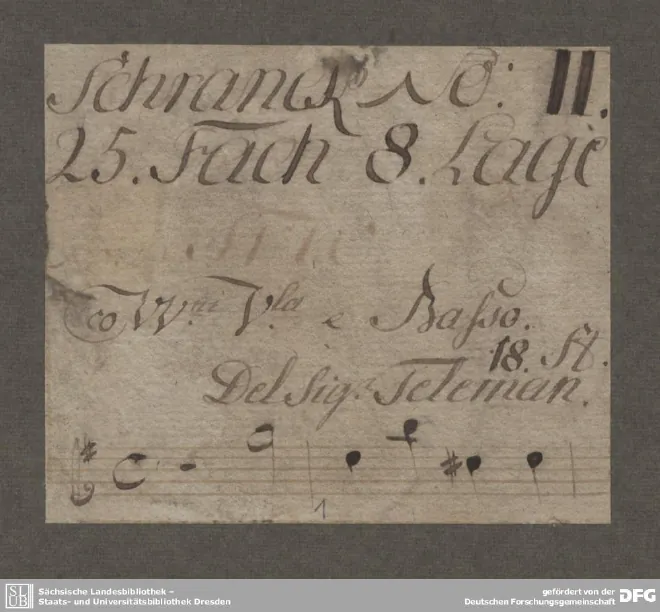 Schranck No: II.
25. Fach 8. Lage
co VV.ni V.la e Basso.
18. St.
Del Sig.r Teleman.
1
SLUB
Sächsische Landesbibliothek –
Staats- und Universitätsbibliothek Dresden
gefördert von der
Deutschen Forschungsgemeinschaft
DFG